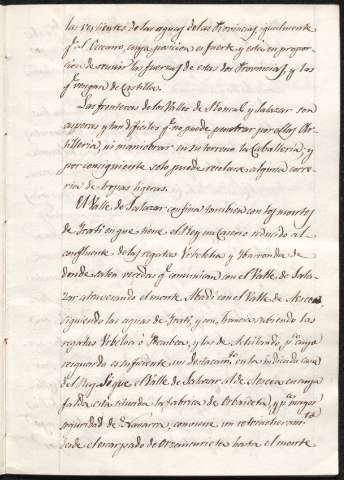 las vertientes de las aguas de las Provincias, igualmente
q.e S.
cuya posicion es fuerte y esta en propor-
cion de reunir las fuerzas de estas dos Provincias, y las
q.e vengan de Castilla.
Las fronteras de los Valles de Roncal y Salazar son
asperas y tan dificiles q.e no puede penetrar por ellas Ar-
tilleria, ni maniobrar en su terreno la Caballeria, y
por consiguiente solo puede recelarse alguna corre-
ria de tropas ligeras.
El Valle de Salazar confina tambien con los montes
de Yrati en que tiene el Rey un Caserio reducido al
confluente de las regatas Urbelcha y Ybarrondoa de
donde salen veredas q.e comunican con el Valle de Sala-
zar atravesando el monte Abodi con el Valle de Aezcoa
siguiendo las aguas de Yrati, y con Francia subiendo las
regatas Urbelcha
y las de
cuyo
resguardo es suficiente un destacam.to en la indicada casa
del Rey. Sigue el Valle de Salazar al de Aezcoa en cuya
falda está situada la fabrica de Orbaiceta, y p.a mayor
seguridad de Navarra, conviene un retrincheram.to
desde el escarpado de
hasta el monte